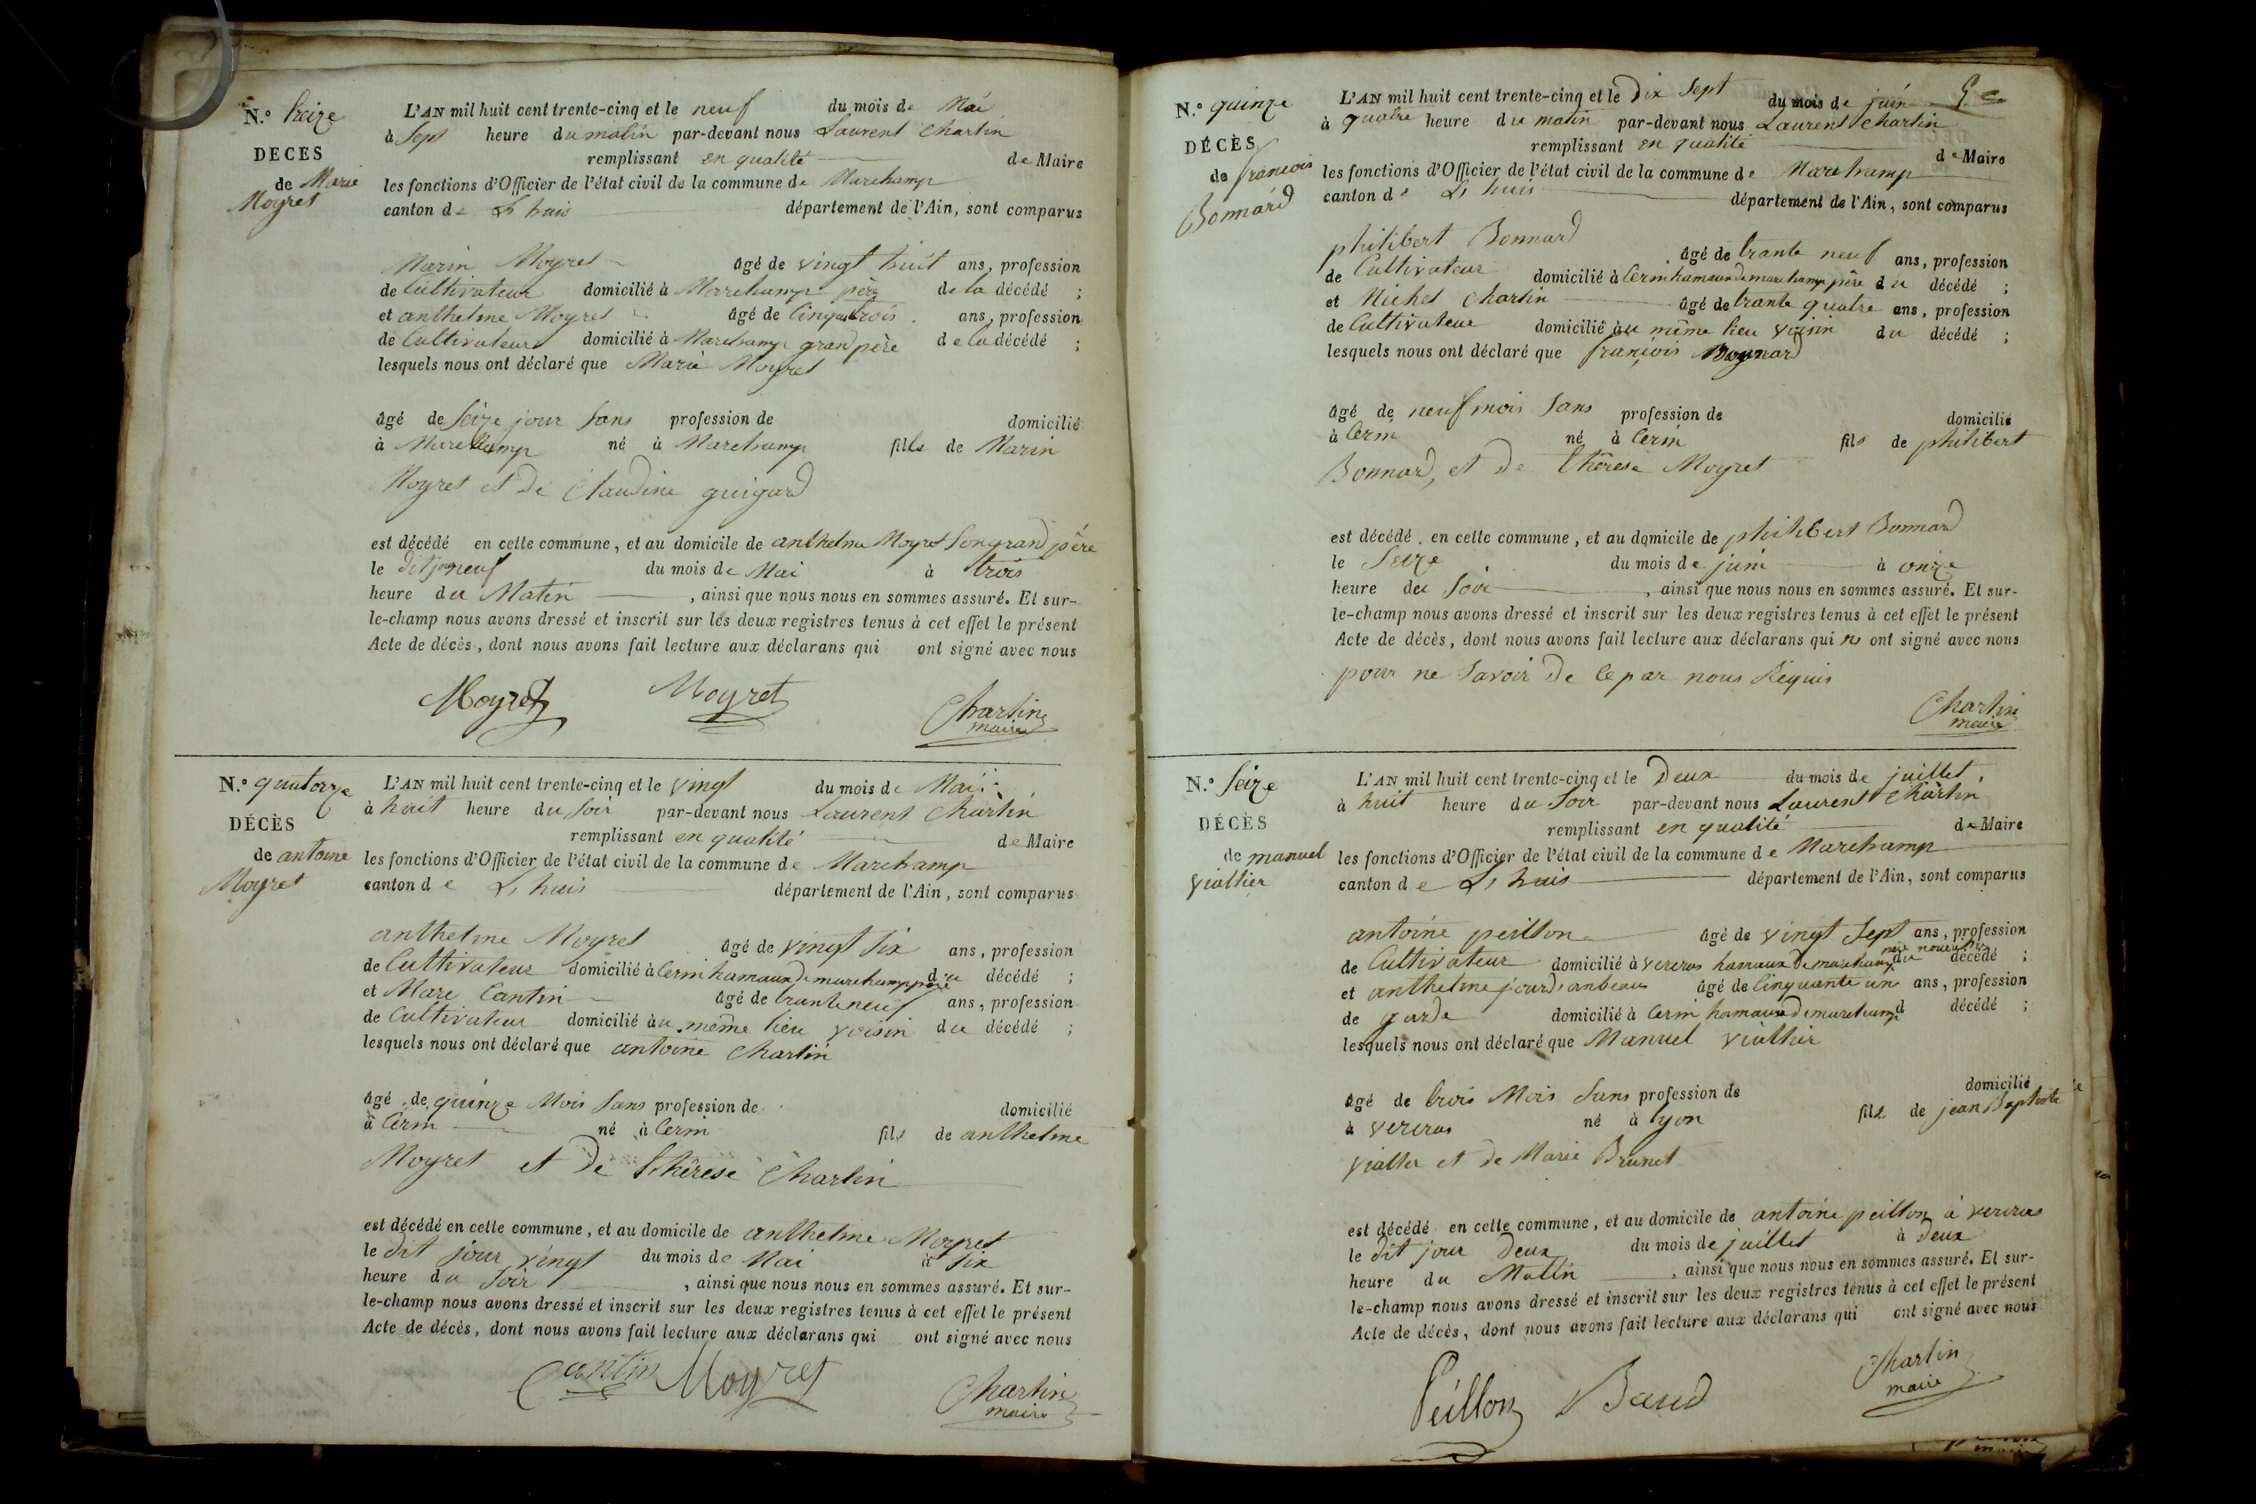 N.° treize
DECES
de Marie
Moyret
L'AN mil huit cent trente-cinq et le neuf du mois de Mai
à Sept heure du matin par-devant nous Laurent Chartin
remplissant en qualité de Maire
les fonctions d'Officier de l'état civil de la commune de Marchamp
canton de L'huis département de l'Ain, sont comparus
Marin Moyret âgé de vingt huit ans, profession
de Cultivateur domicilié à Marchamp père de la décédé ;
et anthelme Moyret âgé de Cinqte trois ans, profession
de Cultivateur domicilié à Marchamp grand père de la décédé ;
lesquels nous ont déclaré que Marie Moyret
âgé de Seize jour Sans profession de domicilié
à Marchamp né à Marchamp fille de Marin
Moyret et de Claudine guigard
est décédé en cette commune, et au domicile de anthelme Moyret Son grand père
le dit jour neuf du mois de Mai à trois
heure du Matin , ainsi que nous nous en sommes assuré. Et sur-
le-champ nous avons dressé et inscrit sur les deux registres tenus à cet effet le présent
Acte de décès, dont nous avons fait lecture aux déclarans qui ont signé avec nous
Moyret Moyret Chartin
maire
N.° quatorze
DÉCÈS
de antoine
Moyret
L'AN mil huit cent trente-cinq et le vingt du mois de Mai
à huit heure du Soir par-devant nous Laurent Chartin
remplissant en qualité de Maire
les fonctions d'Officier de l'état civil de la commune de Marchamp
canton de L'huis département de l'Ain, sont comparus
anthelme Moyret âgé de vingt Six ans, profession
de Cultivateur domicilié à Cerin hamaux de marchamp père du décédé ;
et Marc Cantin âgé de trante neuf ans, profession
de Cultivateur domicilié au même lieu voisin du décédé ;
lesquels nous ont déclaré que antoine Chartin
âgé de quinze Mois Sans profession de domicilié
à Cerin né à Cerin fils de anthelme
Moyret et de thérèse Chartin
est décédé en cette commune, et au domicile de anthelme Moyret
le dit jour vingt du mois de Mai à Six
heure du Soir , ainsi que nous nous en sommes assuré. Et sur-
le-champ nous avons dressé et inscrit sur les deux registres tenus à cet effet le présent
Acte de décès, dont nous avons fait lecture aux déclarans qui ont signé avec nous
Cantin Moyret Chartin
maire
N.° quinze
DÉCÈS
de francois
Bonnard
L'AN mil huit cent trente-cinq et le Dix Sept du mois de juin
à quatre heure du matin par-devant nous Laurent Chartin
remplissant en qualité de Maire
les fonctions d'Officier de l'état civil de la commune de Marchamp
canton de L'huis département de l'Ain, sont comparus
philibert Bonnard âgé de trante neuf ans, profession
de Cultivateur domicilié à Cerin hamaux de marchamp père du décédé ;
et Michel Chartin âgé de trante quatre ans, profession
de Cultivateur domicilié au même lieu voisin du décédé ;
lesquels nous ont déclaré que françois Bonnard
âgé de neuf mois Sans profession de domicilié
à Cerin né à Cerin fils de philibert
Bonnard, et de thérèse Moyret
est décédé en cette commune, et au domicile de philibert Bonnard
le Seize du mois de juin à onze
heure du Soir , ainsi que nous nous en sommes assuré. Et sur-
le-champ nous avons dressé et inscrit sur les deux registres tenus à cet effet le présent
Acte de décès, dont nous avons fait lecture aux déclarans qui n'e ont signé avec nous
pour ne Savoir de Ce par nous Réquis
Chartin
maire
N.° Seize
DÉCÈS
de manuel
viallier
L'AN mil huit cent trente-cinq et le Deux du mois de juillet
à huit heure du Soir par-devant nous Laurent Chartin
remplissant en qualité de Maire
les fonctions d'Officier de l'état civil de la commune de Marchamp
canton de L'huis département de l'Ain, sont comparus
antoine peillon âgé de vingt Sept ans, profession
de Cultivateur domicilié à vereras hamaux de marchamp père nouricier du décédé ;
et anthelme âgé de Cinquante un ans, profession
de garde domicilié à Cerin hamaux de marchamp d décédé ;
lesquels nous ont déclaré que Manuel viallier
âgé de trois Mois Sans profession de domicilié
à vereras né à Lyon fils de jean Baptiste
vialler et de Marie Brunet
est décédé en cette commune, et au domicile de antoine peillon à vereras
le dit jour Deux du mois de juillet à Deux
heure du Matin , ainsi que nous nous en sommes assuré. Et sur-
le-champ nous avons dressé et inscrit sur les deux registres tenus à cet effet le présent
Acte de décès, dont nous avons fait lecture aux déclarans qui ont signé avec nous
Peillon Baud Chartin
maire